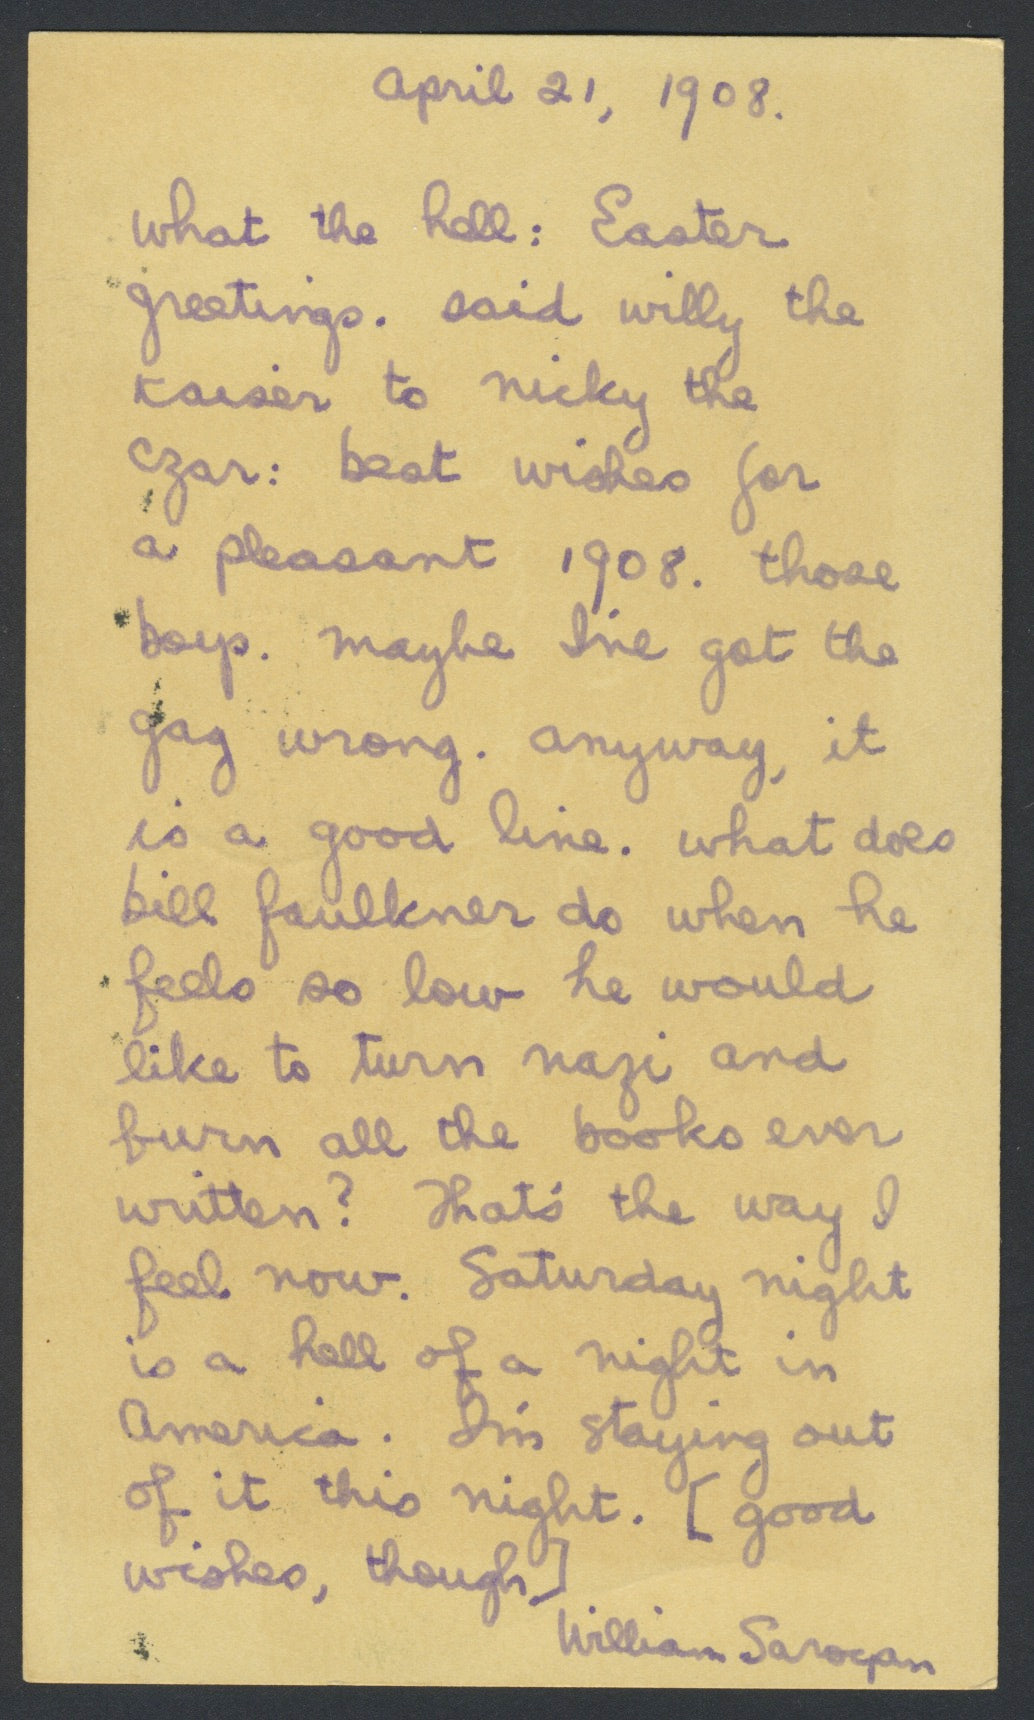 April 21, 1908.
what the hell: Easter
greetings. said willy the
kaiser to nicky the
czar: best wishes for
a pleasant 1908. those
boys. maybe I've got the
gag wrong. anyway, it
is a good line. what does
bill faulkner do when he
feels so low he would
like to turn nazi and
burn all the books ever
written? That's the way I
feel now. Saturday night
is a hell of a night in
America. I'm staying out
of it this night. [good
wishes, though]
William Saroyan